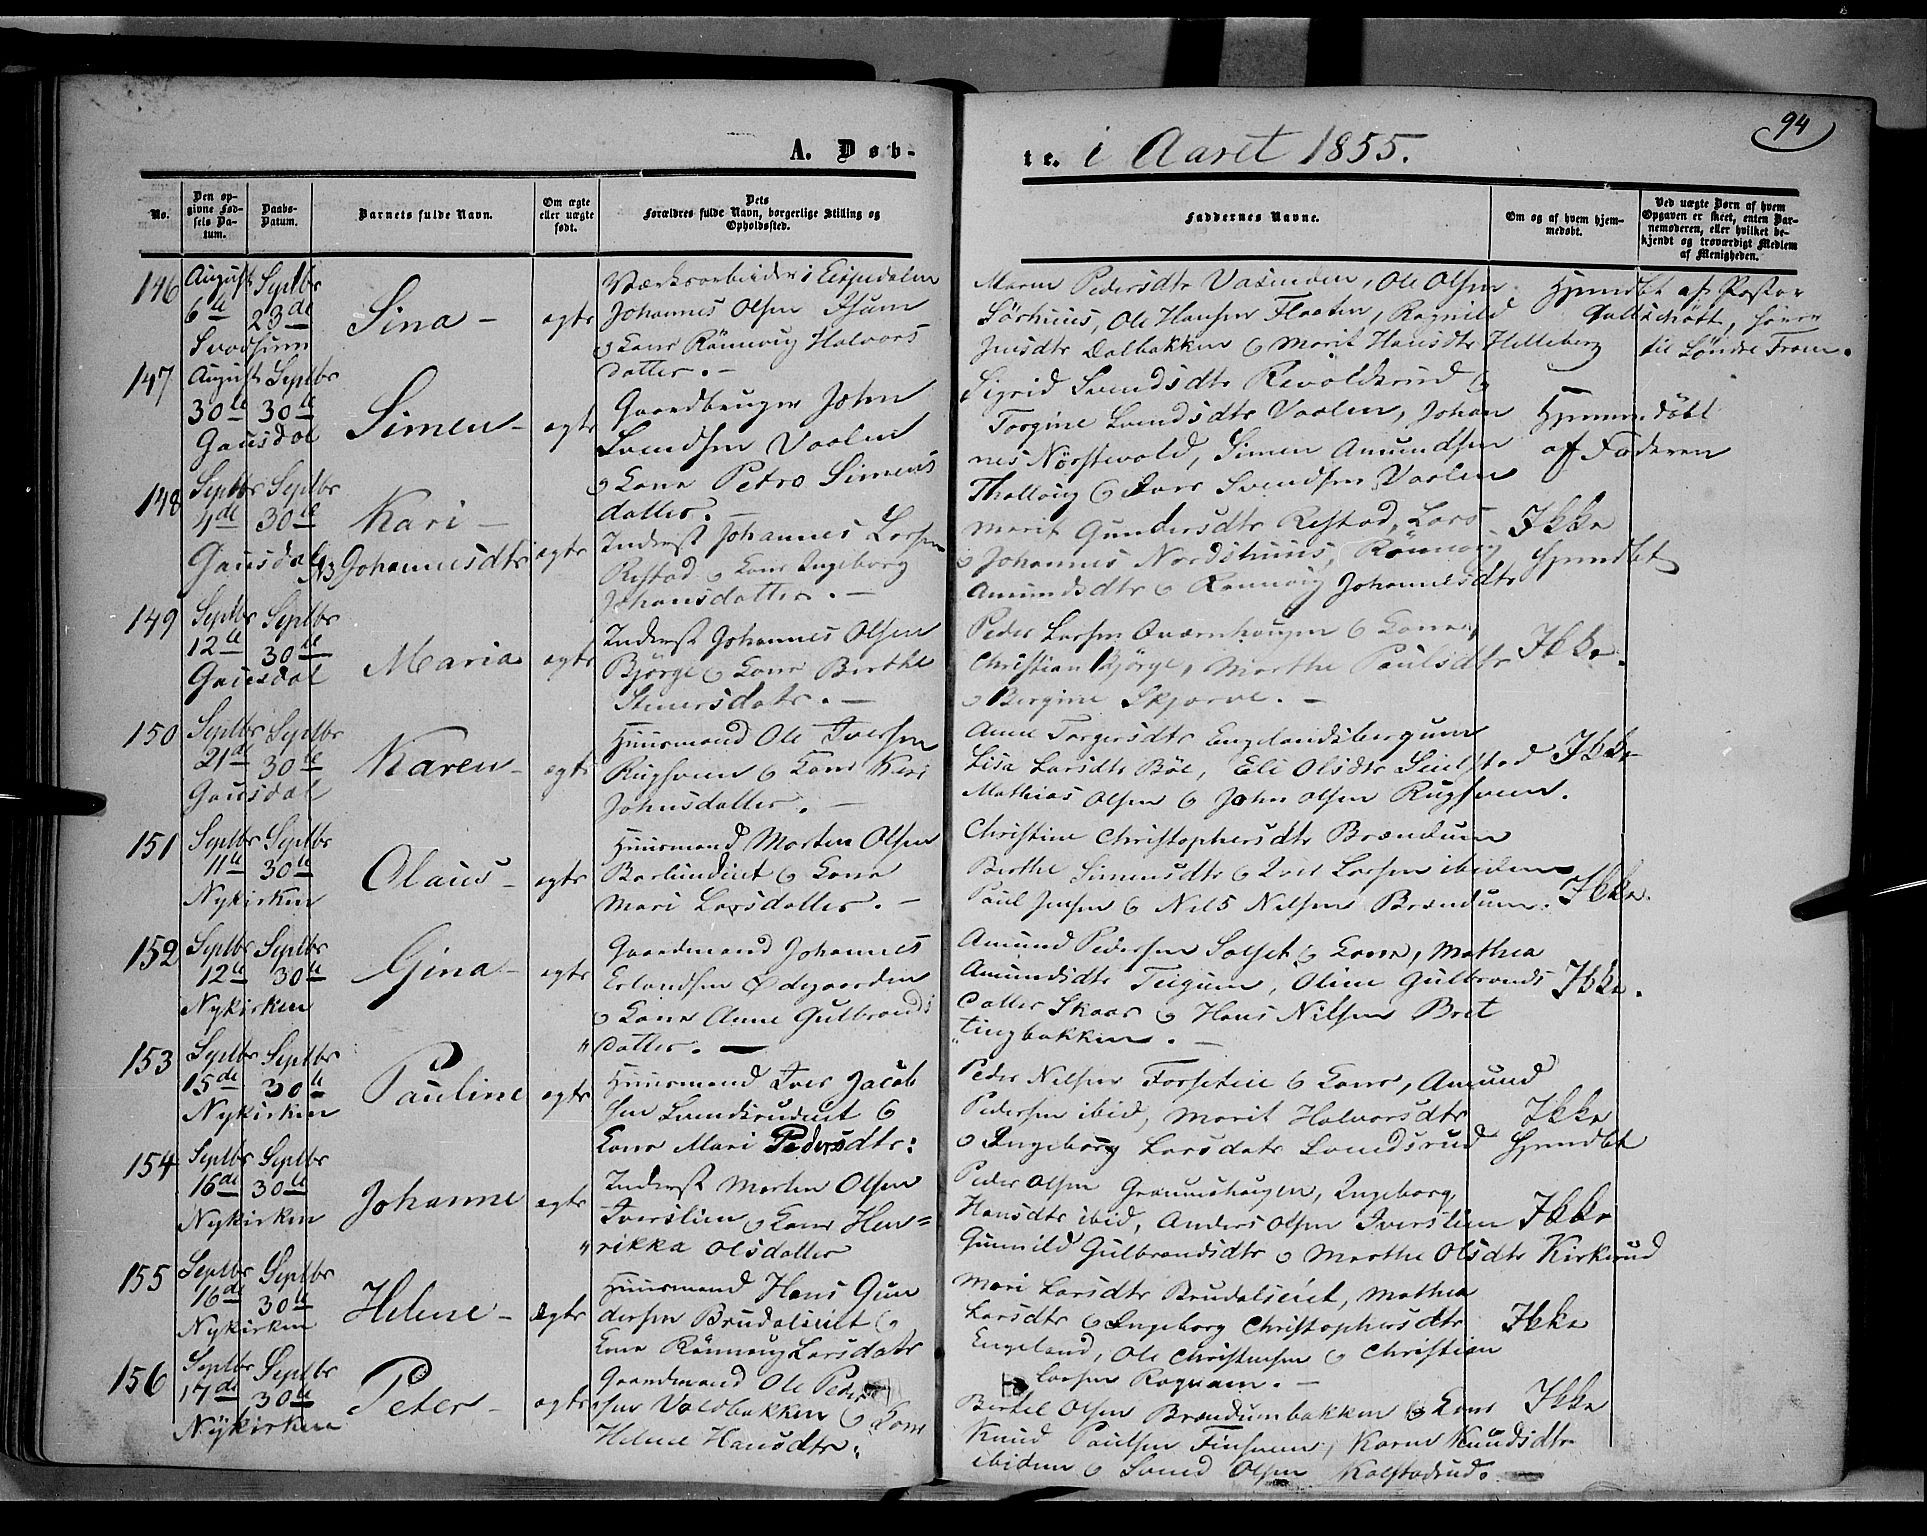 94
A. Døb-
te. i Aaret 1855.
No.
Den op-
givne Fød-
sels Da-
tum.
Daabs-
Datum.
Barnets fulde Navn.
Om ægte
eller uægte
født.
Dets
Forældres fulde Navn, borgerlige Stilling og
Opholdssted.
Faddernes Navne.
Om og af hvem hjem-
medøbt.
Ved uægte Børn af hvem
Opgaven er skeet, enten Bar-
nemoderen, eller hvilket be-
kjendt og troværdigt Medlem
af Menigheden.
146
August
6te
Svatsum
Septbr
23de
Sina -
ægte
Værksarbeider i Espedalen
Johannes Olsen
og Kone Rönnoug Halvors
datter. -
Maren Pedersdtr, Ole Olsen
Sörhuus, Ole Hansen Flaaten, Ragnild
Jensdtr Dalbakken og Marit Hansdtr Helleberg
Hjemdbt af Pastor
, hörer
til Söndre Fron.
147
August
30te
Gausdal
Septbr
30te
Simen -
ægte
Gaardbruger John
Svendsen Vaalen
og Kone Petra Simens
datter. -
Sigrid Svendsdtr og
Torgine Svendsdtr Vaalen, Johan
nes Nörstevold, Simen Amundsen
og Lars Svendsen Vaalen
Hjemmedöbt
af Faderen
148
Septbr
4de
Gausdal
Septbr
30te
Kari -
Johannesdtr
ægte
Inderst Johannes Larsen
Restad og Kone Ingeborg
Johansdatter. -
Marit Gundersdtr Restad, Lars
og Johannes Nordshuus, Rönnoug
Amundsdtr og Rönnoug Johannesdtr
Ikke
Hjemdbt
149
Septbr
12te
Gausdal
Septbr
30te
Maria
ægte
Inderst Johannes Olsen
Björge og Kone Berthe
Steenersdatr. -
Peder Larsen Qværnhaugen og Kone,
Christian Björge, Marthe Paulsdtr
og Bergine Skjærve. -
Ikke.
150
Septbr
21de
Gausdal
Septbr
30te
Karen -
ægte
Huusmand Ole Iversen
Rugsveen og Kone Kari
Johnsdatter. -
Anne Torgersdtr
Lisa Larsdtr Böe, Eli Olsdtr Seielstad
Mathias Olsen og John Olsen Rugsveen.
Ikke
151
Septbr
11te
Nykirken
Septbr
30te
Olaus -
ægte
Huusmand Morten Olsen
og Kone
Mari Larsdatter. -
Christine Christophersdtr Brændum
Berthe Simensdtr og Larsen ibidem
Paul Jensen og Nils Nilsen Brændum.
Ikke.
152
Septbr
12te
Nykirken
Septbr
30te
Gina -
ægte
Gaardmand Johannes
Erlandsen Ödegaarden
og Kone Anne Gulbrands
" datter. -
Amund Pedersen og Kone, Mathea
Amundsdtr, Oline Gulbrands
datter Skaar og Hans Nilsen Bret
" tingbakken. -
Ikke.
153
Septbr
15de
Nykirken
Septbr
30te
Pauline
ægte
Huusmand Iver Jacob
sen og
Kone Mari Pedersdtr:
Peder Nilsen og Kone, Amund
Pedersen ibid, Marit Halvorsdtr
og Ingeborg Larsdatr
Ikke
Hjemdbt
154
Septbr
16de
Nykirken
Septbr
30te
Johanne
ægte
Inderst Morten Olsen
Iverslien og Kone Hen=
" rikka Olsdatter
Peder Olsen, Ingeborg
Hansdtr ibid, Anders Olsen Iverslien
Gunnild Gulbrandsdtr og Marthe Olsdtr Kirkerud
Ikke
155
Septbr
16de
Nykirken
Septbr
30te
Helene -
ægte
Huusmand Hans Gun
dersen og
Kone Rönnoug Larsdatr
Mari Larsdtr, Mathea
Larsdtr og Ingeborg Christophersdtr
Engeland, Ole Christensen og Christian
Larsen. -
Ikke
156
Septbr
17de
Nykirken
Septbr
30te
Peter -
ægte
Gaardmand Ole Peder
sen Voldbakken og Kone
Helene Hansdtr:
Bertel Olsen Brændumbakken og Kone
Knud Paulsen, Karen Knudsdtr
ibidem og Svend Olsen Kalstadrud. -
Ikke